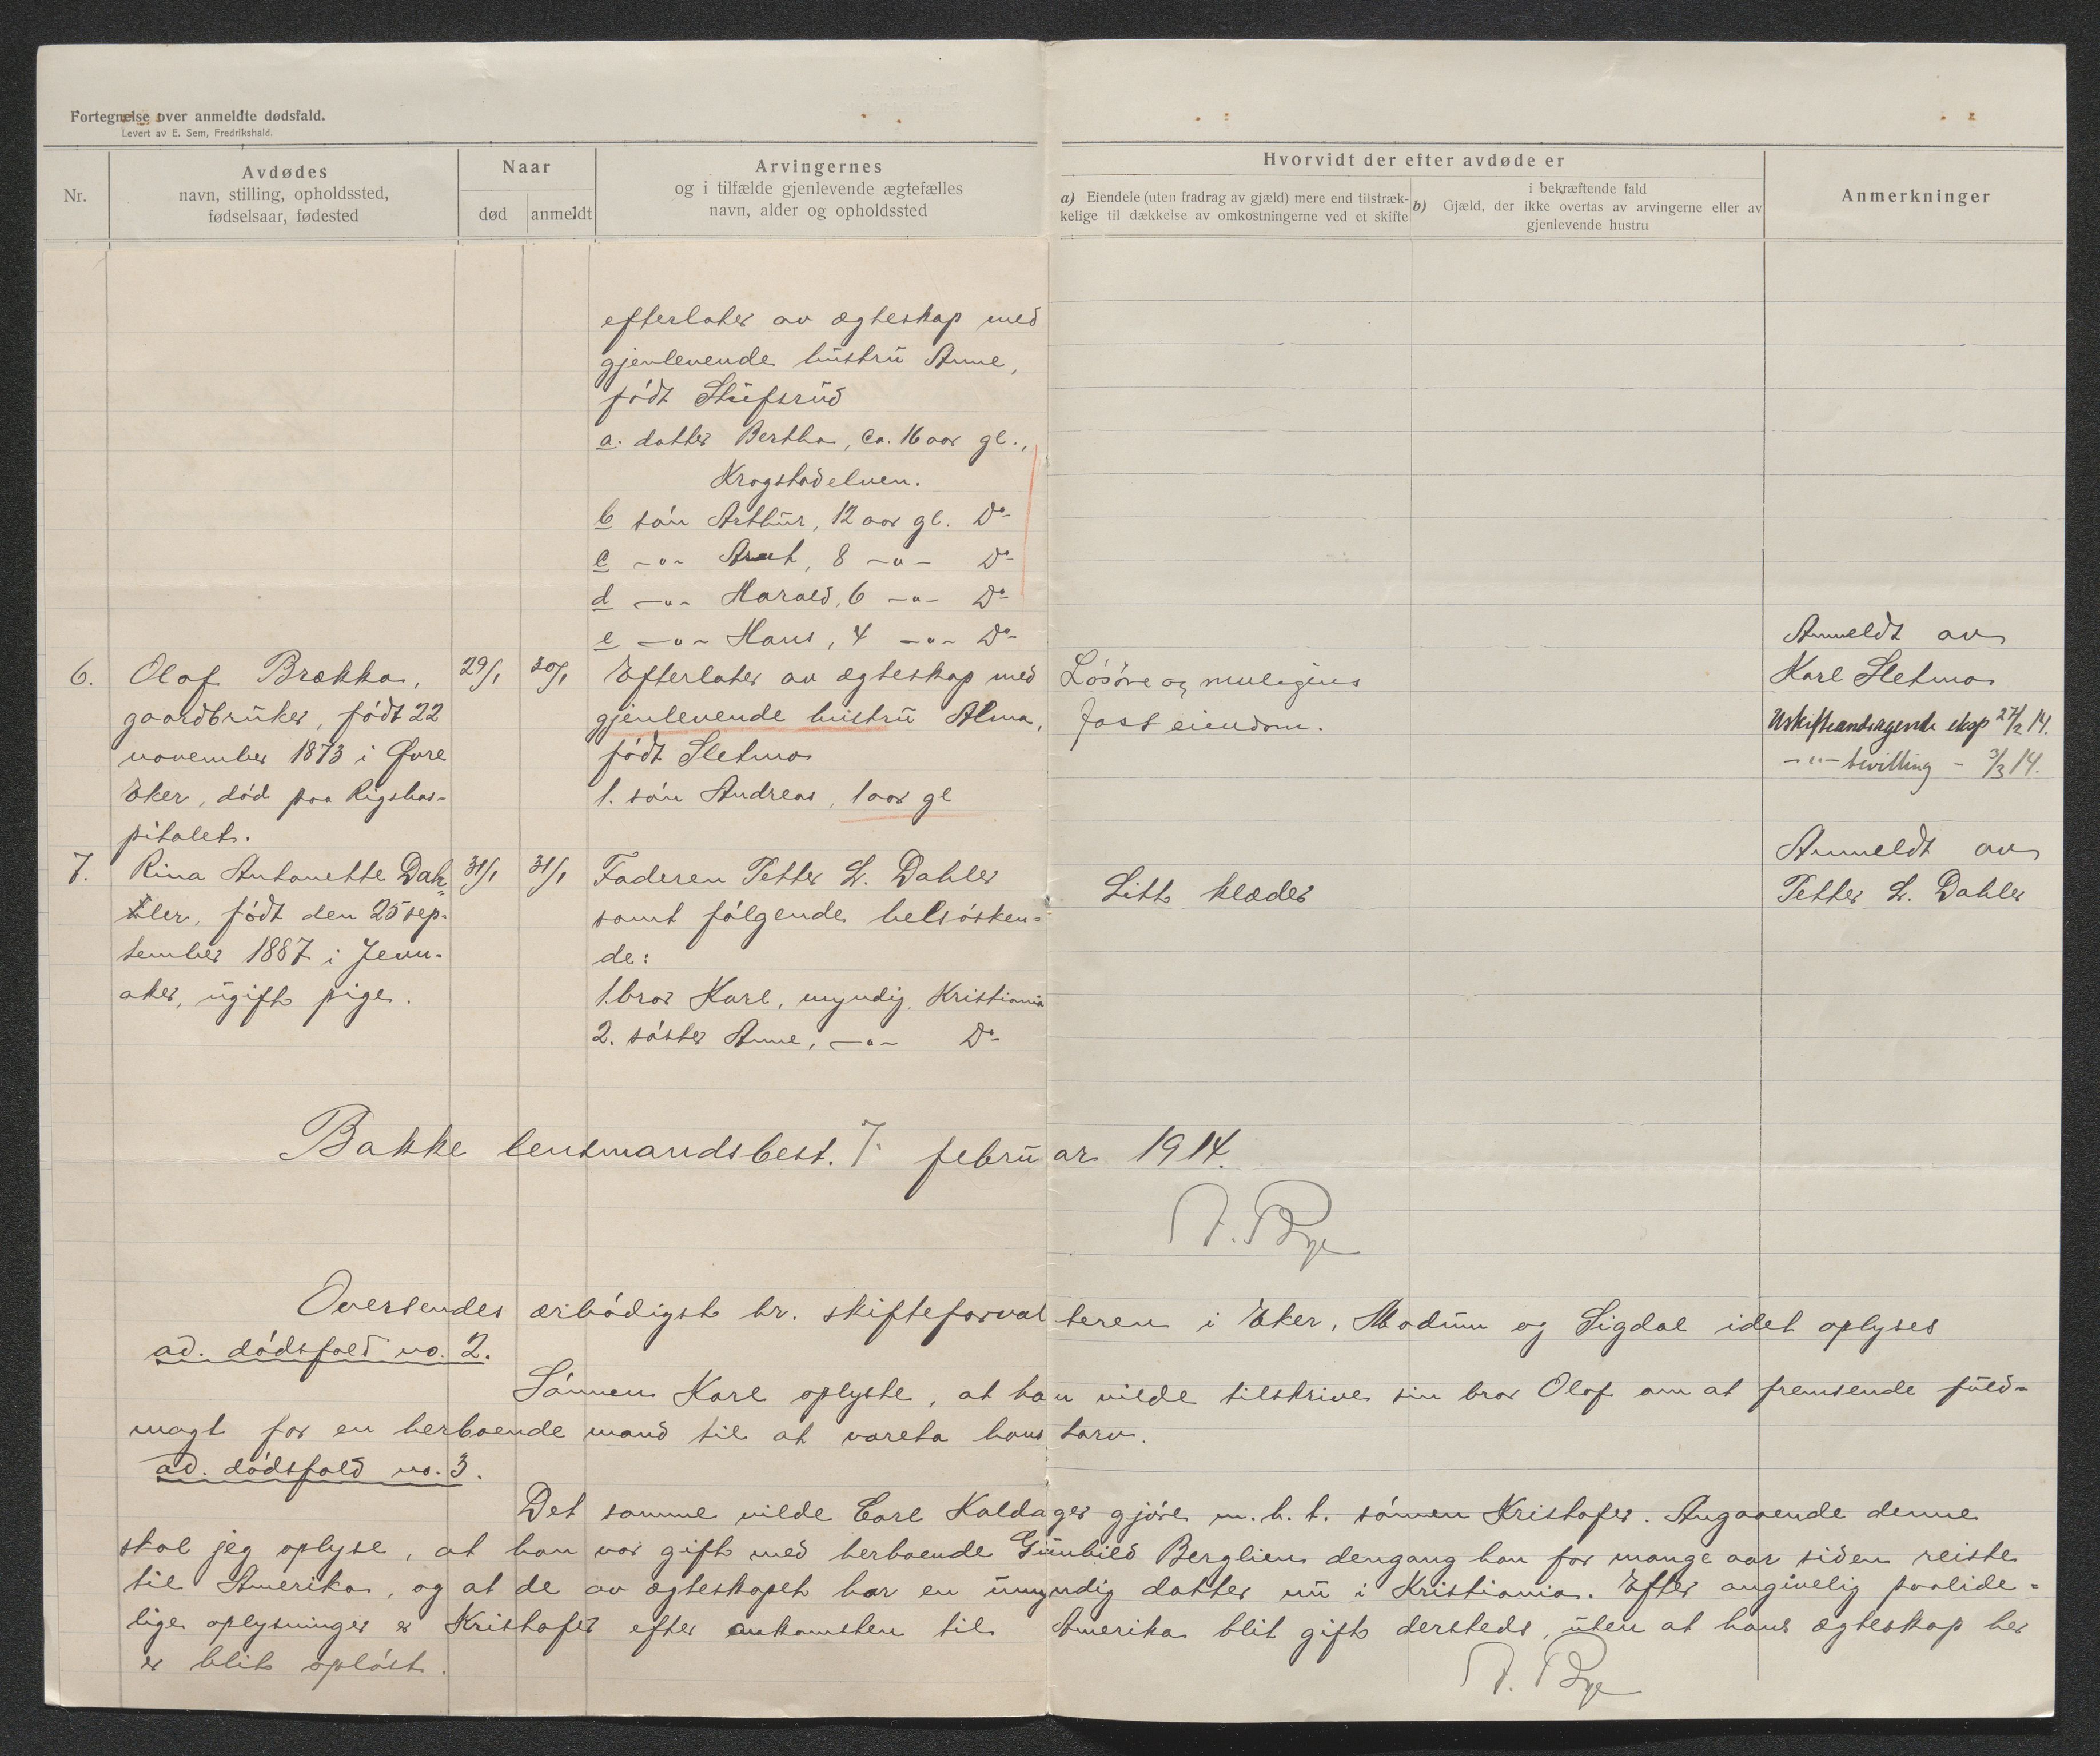 Fortegnelse over anmeldte dødsfald.
Levert av E. Sem, Fredrikshald.
Nr.
Avdødes
navn, stilling, opholdssted,
fødselsaar, fødested
Naar
død
anmeldt
Arvingernes
og i tilfælde gjenlevende ægtefælles
navn, alder og opholdssted
Hvorvidt der efter avdøde er
a) Eiendele (uten fradrag av gjæld) mere end tilstræk-
kelige til dækkelse av omkostningerne ved et skifte
i bekræftende fald
b) Gjæld, der ikke overtas av arvingerne eller av
gjenlevende hustru
Anmerkninger
efterlater av ægteskap med
gjenlevende hustru Anne,
født Stufsrud
a. datter Bertha, ca. 16 aar gl.,
Krogstadelven.
b søn Arthur, 12 aar gl. Do
c -"- 8 -"- Do
d -"- Harald, 6 -"- Do
e -"- Hans, 4 -"- Do
6. Olaf Brækka, 29/1 30/1 Efterlater av ægteskap med Løsøre og muligens
gaardbruker, født 22 gjenlevende hustru Alma, fast eiendom.
november 1873 i Øvre født Sletmo
Eker, død paa Rigshos- 1. søn Andreas, 1 aar gl
pitalet.
Anmeldt av
Karl Sletmo
Uskifteandragende eksp 27/2 14.
-"- bevilling - 3/3 14.
7. Rina Antonette Dah- 31/1 31/1 Faderen Petter L. Dahler Litt klæder
ler, født den 25 sep- samt følgende helsøsken-
tember 1887 i Jevn- de:
aker, ugift pige. 1. bror Karl, myndig, Kristiania
2. søster Anne, -"- Do
Anmeldt av
Petter L. Dahler
Bakke lensmandsbest. 7. februar 1914.
A. Bye
Oversendes ærbødigst hr. skifteforvalteren i Eker, Modum og Sigdal idet oplyses
ad. dødsfald no. 2.
Sønnen Karl oplyste, at han vilde tilskrive sin bror Olaf om at fremsende fuld-
magt for en herboende mand til at vareta hans tarv.
ad. dødsfald no. 3.
Det samme vilde Carl Kaldager gjøre m. h. t. sønnen Kristofer. Angaaende denne
skal jeg oplyse, at han var gift med herboende Gunhild Berglien dengang han for mange aar siden reiste
til Amerika, og at de av ægteskapet har en umyndig datter nu i Kristiania. Efter angivelig paalide-
lige oplysninger er Kristofer efter ankomsten til Amerika blit gift dersteds, uten at hans ægteskap her
er blit opløst.
A. Bye